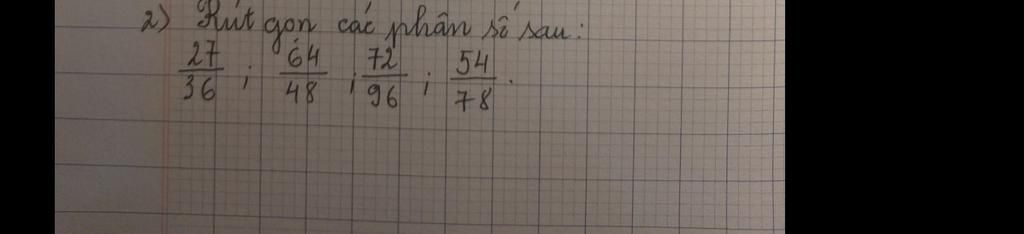 2) Rút gọn các phân số sau:
27/36 ; 64/48 ; 72/96 ; 54/78.